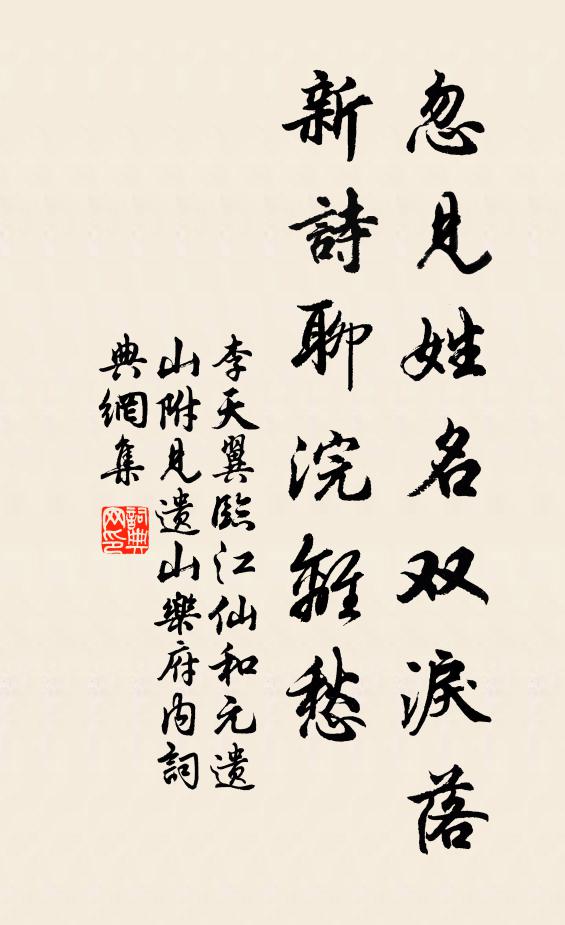 忽見姓名双淚落
新詩聊浣離愁
李天翼臨江仙和元遺
山附見遺山樂府内詞
典網集
詞典网印